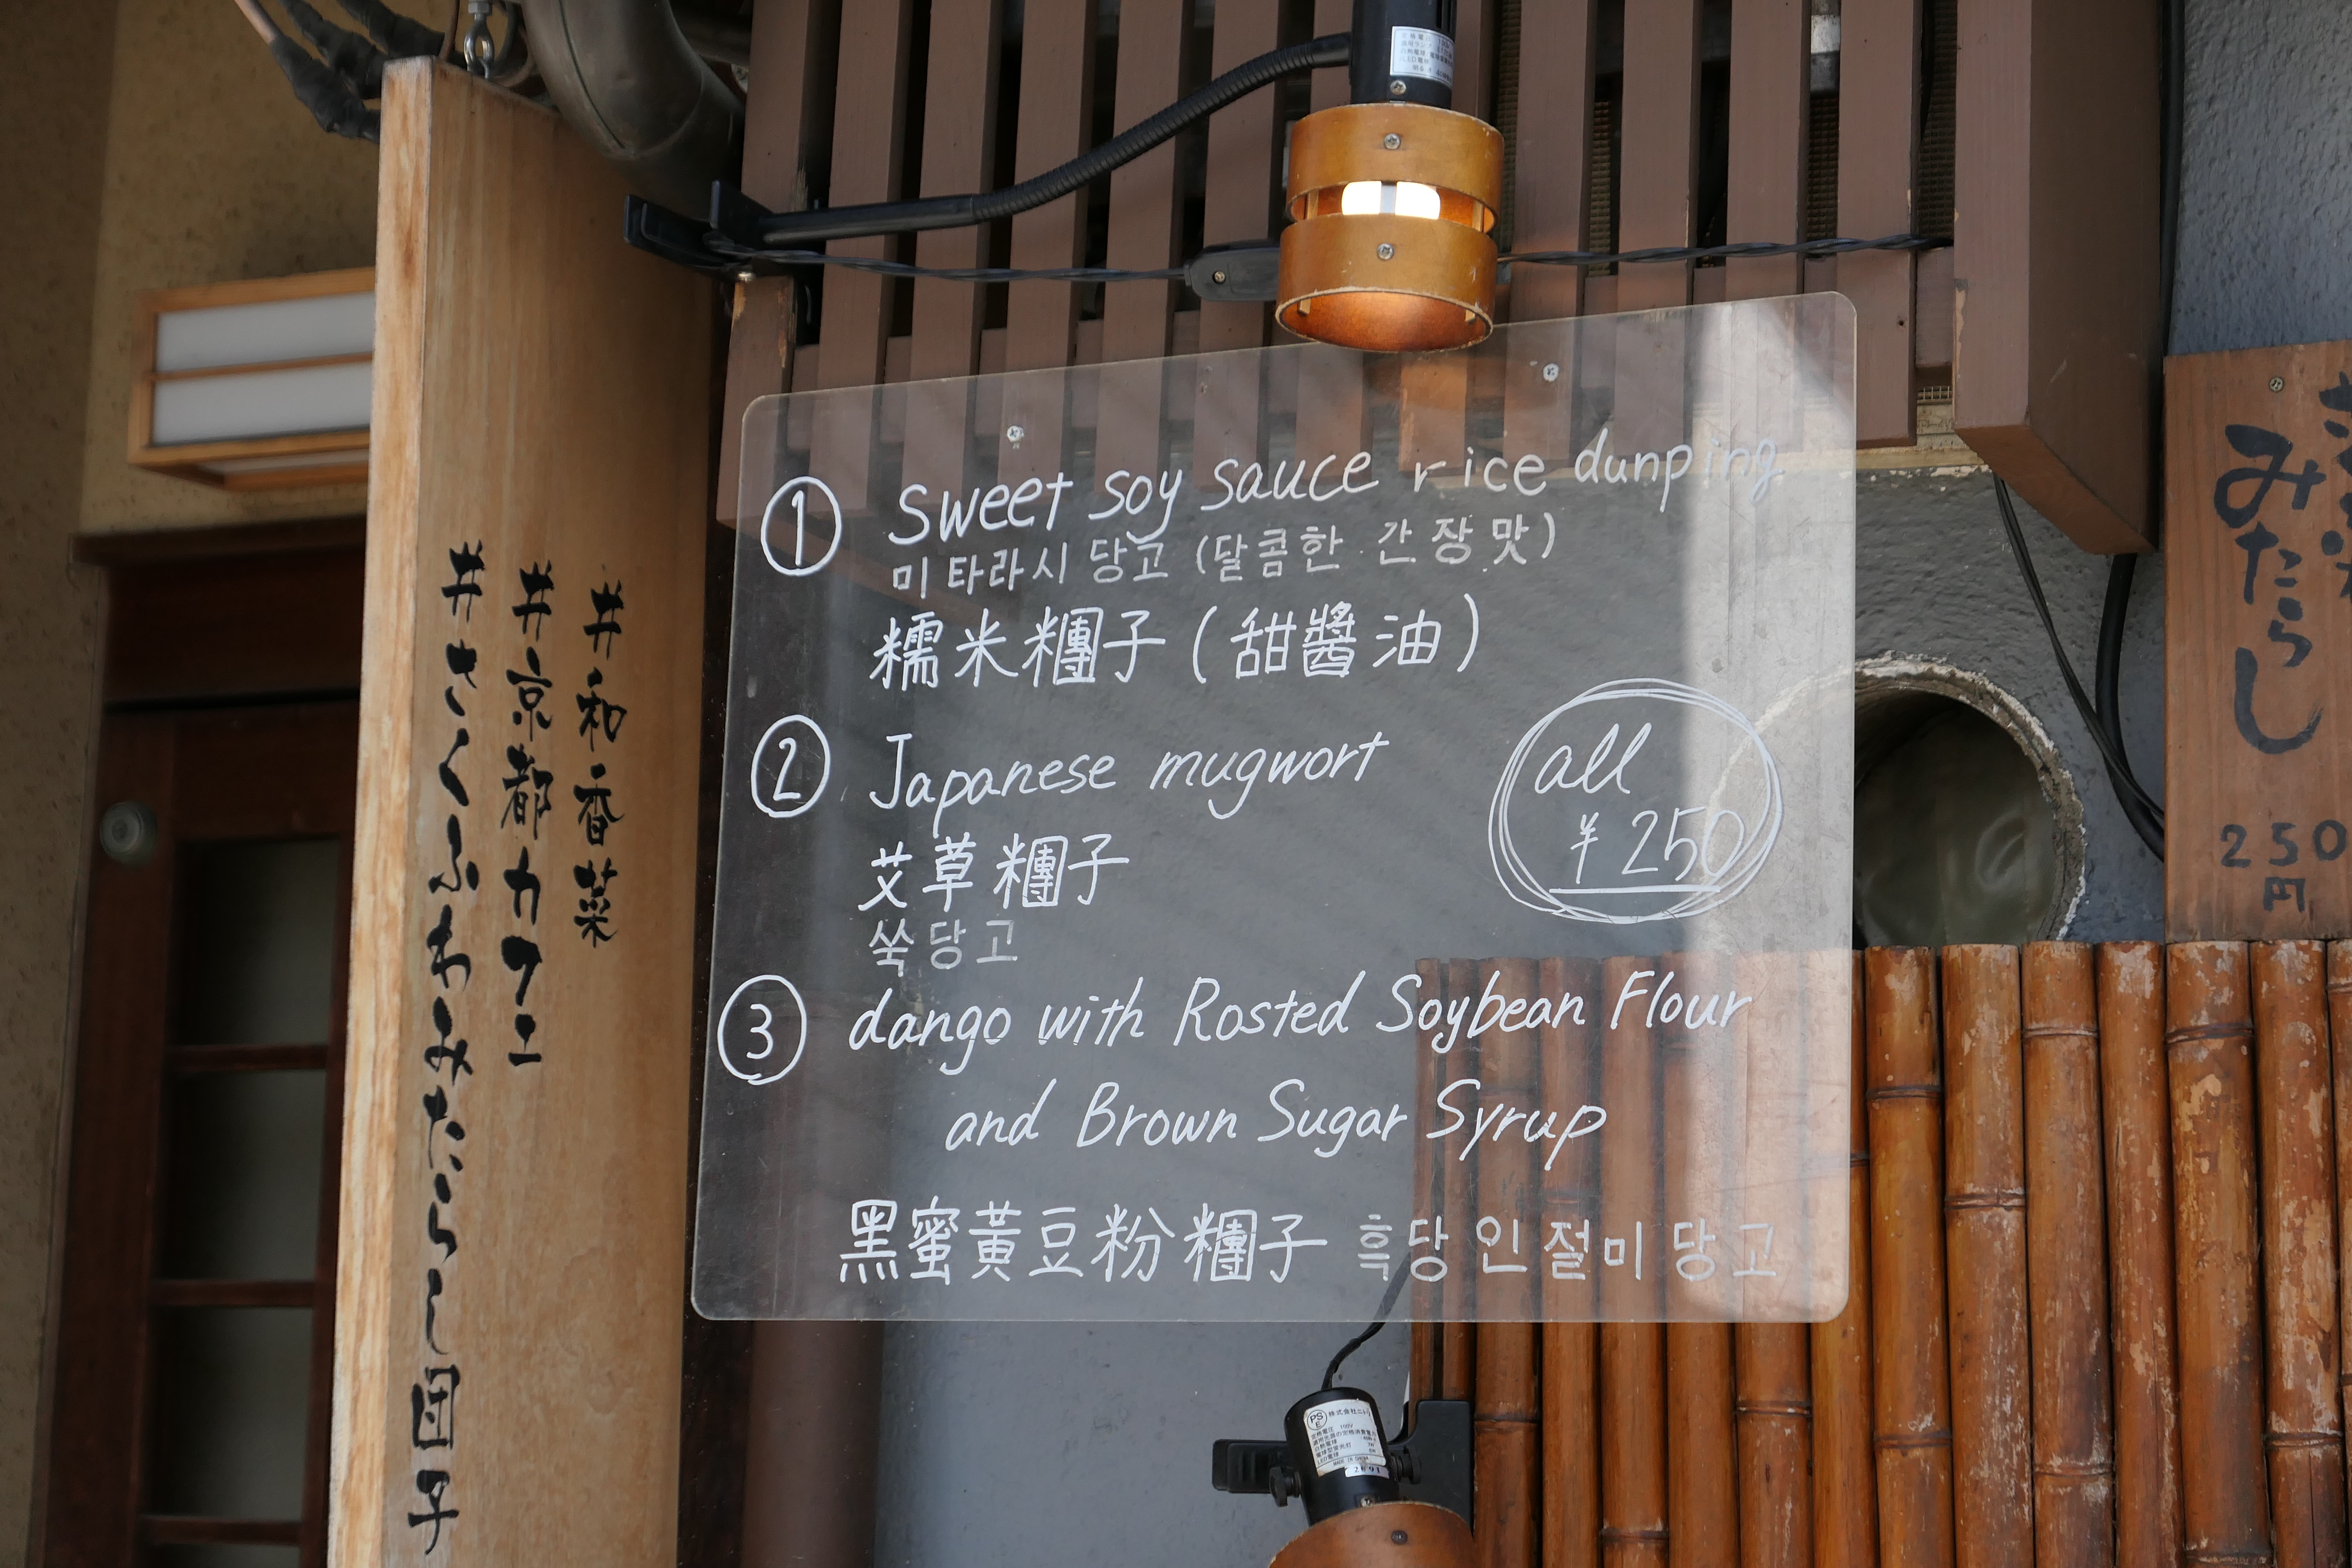 井和香菜
井京都カフェ
井さくふわみたらし団子
① Sweet soy sauce rice dunping
미타라시 당고 (달콤한 간장맛)
糯米糰子(甜醬油)
② Japanese mugwort
艾草糰子
쑥당고
all
¥250
③ dango with Rosted Soybean Flour
and Brown Sugar Syrup
黑蜜黃豆粉糰子 흑당인절미당고
みたらし
250
円